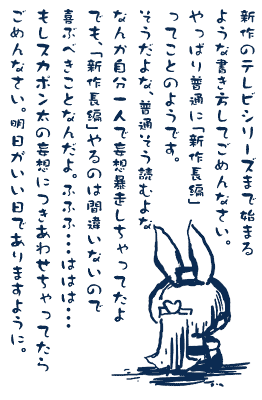 新作のテレビシリーズまで始まる
ような書き方してごめんなさい。
やっぱり普通に「新作長編」
ってことのようです。
そうだよな、普通そう読むよな
なんか自分一人で妄想暴走しちゃってたよ
でも、「新作長編」やるのは間違いないので
喜ぶべきことなんだよ。ふふふ・・・ははは・・・
もしスカポン太の妄想につきあわせちゃってたら
ごめんなさい。明日がいい日でありますように。